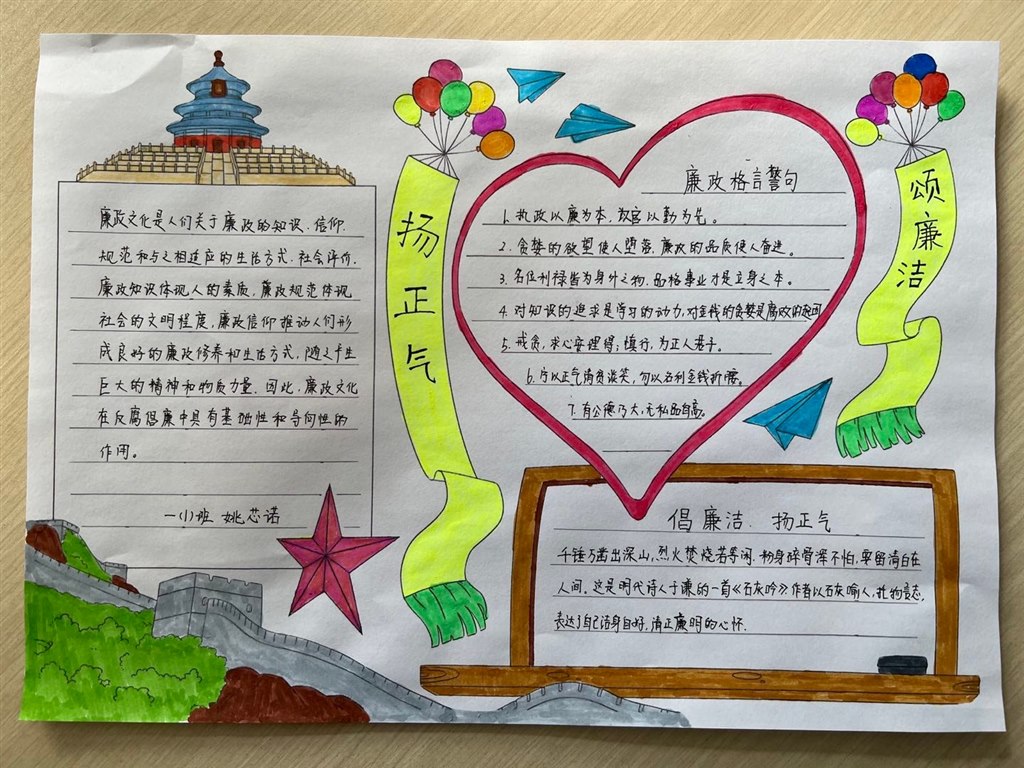 廉政文化是人们关于廉政的知识、信仰、
规范和与之相适应的生活方式、社会评价。
廉政知识体现人的素质，廉政规范体现
社会的文明程度，廉政信仰推动人们形
成良好的廉政修养和生活方式，随之产生
巨大的精神和物质力量。因此，廉政文化
在反腐倡廉中具有基础性和导向性的
作用。
一(1)班 姚芯诺
扬正气
廉政格言警句
1. 执政以廉为本，为官以勤为先。
2. 贪婪的欲望使人堕落，廉政的品质使人奋进。
3. 名位利禄皆为身外之物，品格事业才是立身之本。
4. 对知识的追求是学习的动力，对金钱的贪婪是腐败的起因
5. 戒贪，求心安理得；慎行，为正人君子。
6. 宁以正气清贫谈笑，勿以名利金钱折腰。
7. 有公德乃大，无私品自高。
颂廉洁
倡廉洁、扬正气
千锤万凿出深山，烈火焚烧若等闲。粉身碎骨浑不怕，要留清白在
人间。这是明代诗人于谦的一首《石灰吟》作者以石灰喻人，托物言志，
表达了自己洁身自好，清正廉明的心怀。